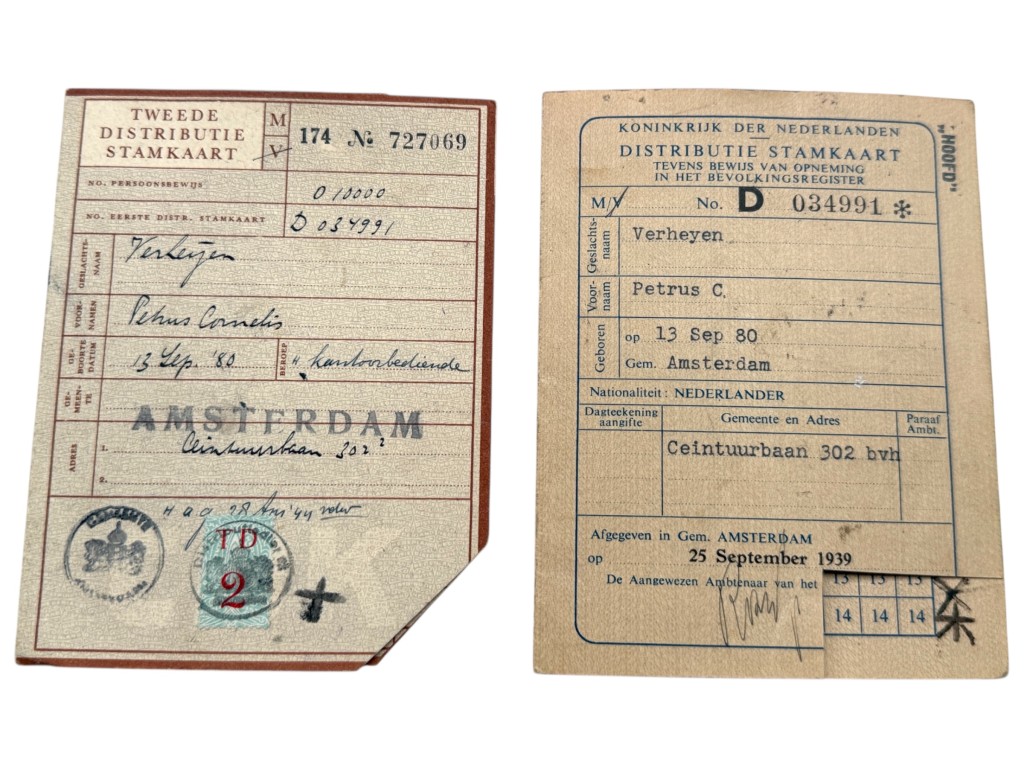 TWEEDE
DISTRIBUTIE
STAMKAART
M
V
174 № 727069
NO. PERSOONSBEWIJS
0 10000
NO. EERSTE DISTR. STAMKAART
D 034991
GESLACHTS-
NAAM
Verheyen
VOOR-
NAMEN
Petrus Cornelis
GE-
BOORTE
DATUM
13 Sep. '80
BEROEP
kantoorbediende
GE-
MEEN-
TE
AMSTERDAM
ADRES
1.
Ceintuurbaan 302²
2.
GEMEENTE
AMSTERDAM
TD
2
KONINKRIJK DER NEDERLANDEN
DISTRIBUTIE STAMKAART
TEVENS BEWIJS VAN OPNEMING
IN HET BEVOLKINGSREGISTER
"HOOFD"
M/V No. D 034991 *
Geslachts-
naam
Verheyen
Voor-
naam
Petrus C.
Geboren
op 13 Sep 80
Gem. Amsterdam
Nationaliteit: NEDERLANDER
Dagteekening
aangifte
Gemeente en Adres
Paraaf
Ambt.
Ceintuurbaan 302 bvh
Afgegeven in Gem. AMSTERDAM
op 25 September 1939
De Aangewezen Ambtenaar van het
13 13 13
14 14 14